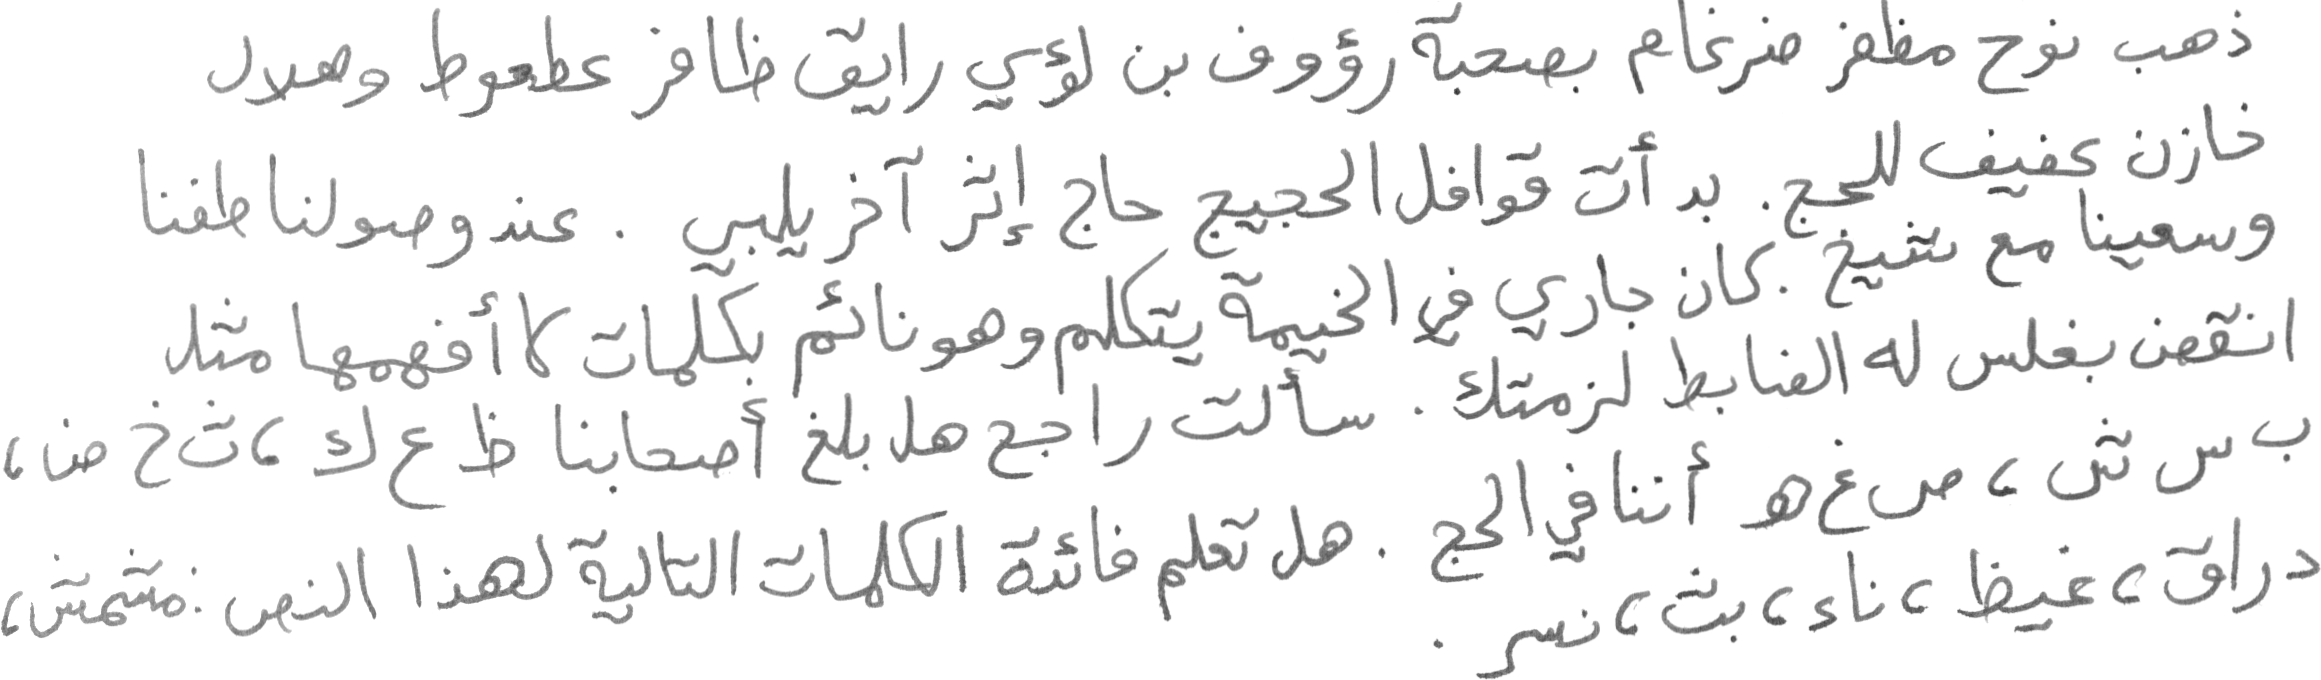 ذهب نوح مظفر ضرغام بصحبة رؤوف بن لؤي رايق ظافر عطعوط وهلال
خازن عفيف للحج. بدأت قوافل الحجيج حاج إثر آخر يلبي . عند وصولنا طفنا
وسعينا مع شيخ . كان جاري في الخيمة يتكلم وهو نائم بكلمات لا أفهمها مثل
انقض بغلس له الضابط لزمتك . سألت راجع هل بلغ أصحابنا ظ ع ك ، ث خ ض ،
ب س ش ، ص غ هـ أننا في الحج . هل تعلم فائدة الكلمات التالية لهذا النص : مشمش ،
دراق ، غيظ ، ناء ، بث ، نسر .